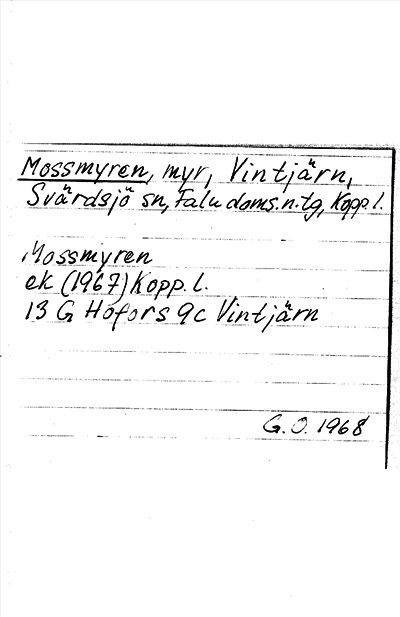 Mossmyren, myr, Vintjärn,
Svärdsjö sn, Falu doms.n.tg, Kopp.l.
Mossmyren
ek (1967) Kopp.l.
13 G Hofors 9c Vintjärn
G.O. 1968